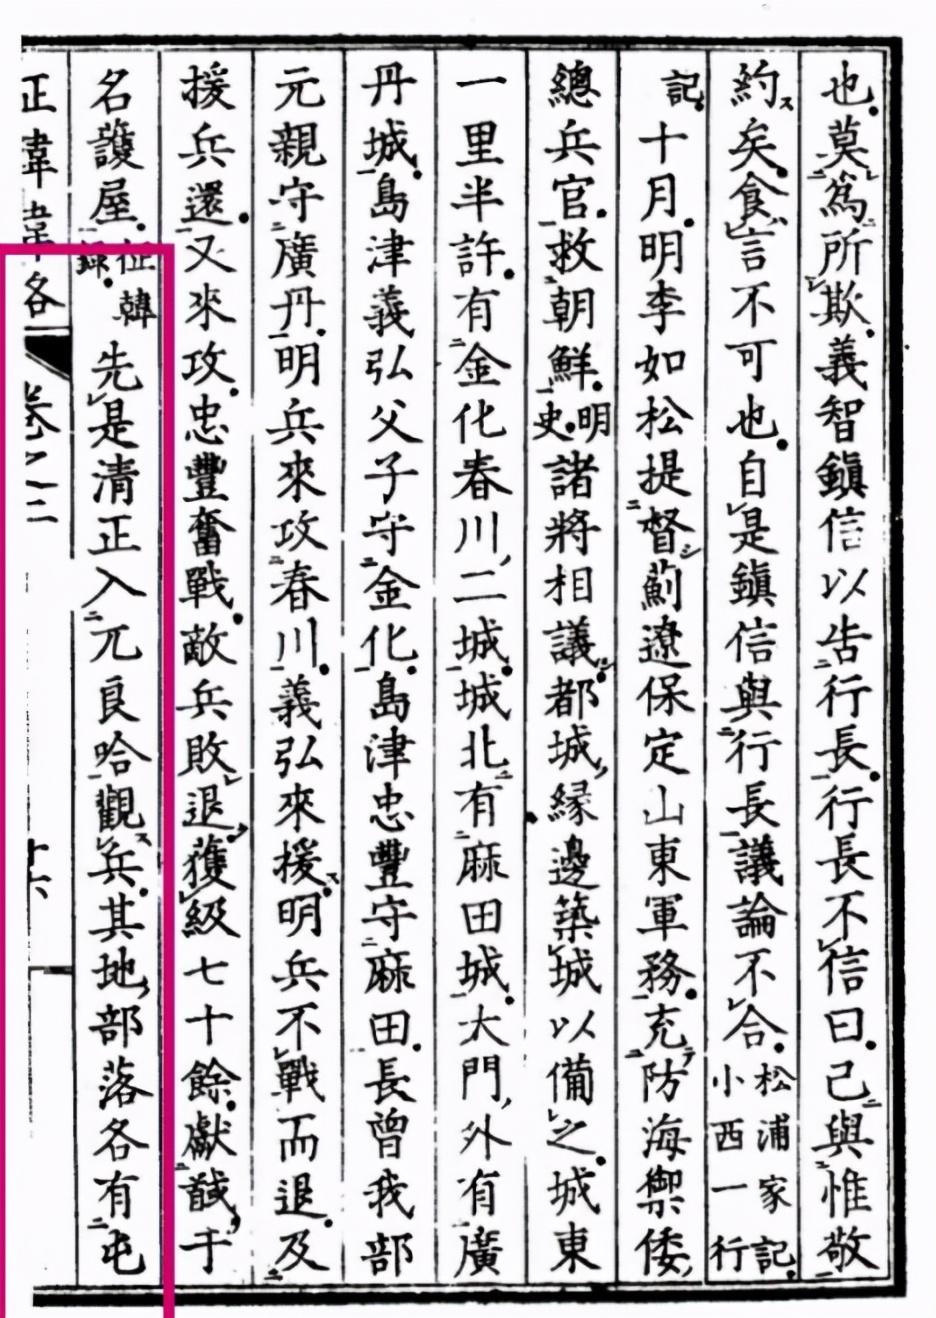 也莫爲所欺義智鎭信以告行長行長不信曰己與惟敬
約矣食言不可也自是鎭信與行長議論不合松浦家記小西一行
記十月明李如松提督薊遼保定山東軍務充防海禦倭
總兵官救朝鮮明史諸將相議都城縁邊築城以備之城東
一里半許有金化春川二城城北有麻田城大門外有廣
丹城島津義弘父子守金化島津忠豐守麻田長曾我部
元親守廣丹明兵來攻春川義弘來援明兵不戰而退及
援兵還又來攻忠豐奮戰敵兵敗退獲級七十餘獻馘于
名護屋征韓錄先是清正入兀良哈觀兵其地部落各有屯